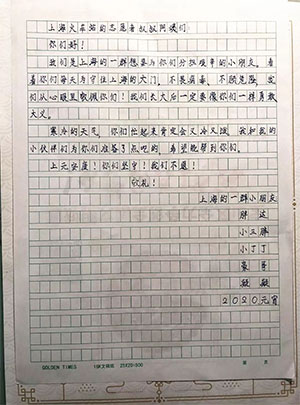 上海火车站的志愿者叔叔阿姨们
你们好!
我们是上海的一群想要为你们分担艰辛的小朋友。看
着你们每天为守住上海的大门,不畏病毒,不顾危险,我
们从心眼里敬佩你们!我们长大后一定要像你们一样勇敢
大义。
寒冷的天气,你们忙起来肯定会又冷又饿,我和我的
小伙伴们为你们准备了点吃的,希望能帮到你们。
上元安康!你们坚守!我们不退!
敬礼!
上海的一群小朋友
胖达
小三胖
小丁丁
豪哥
凝凝
2020元宵
GOLDEN TIMES
25X20=500
第 页